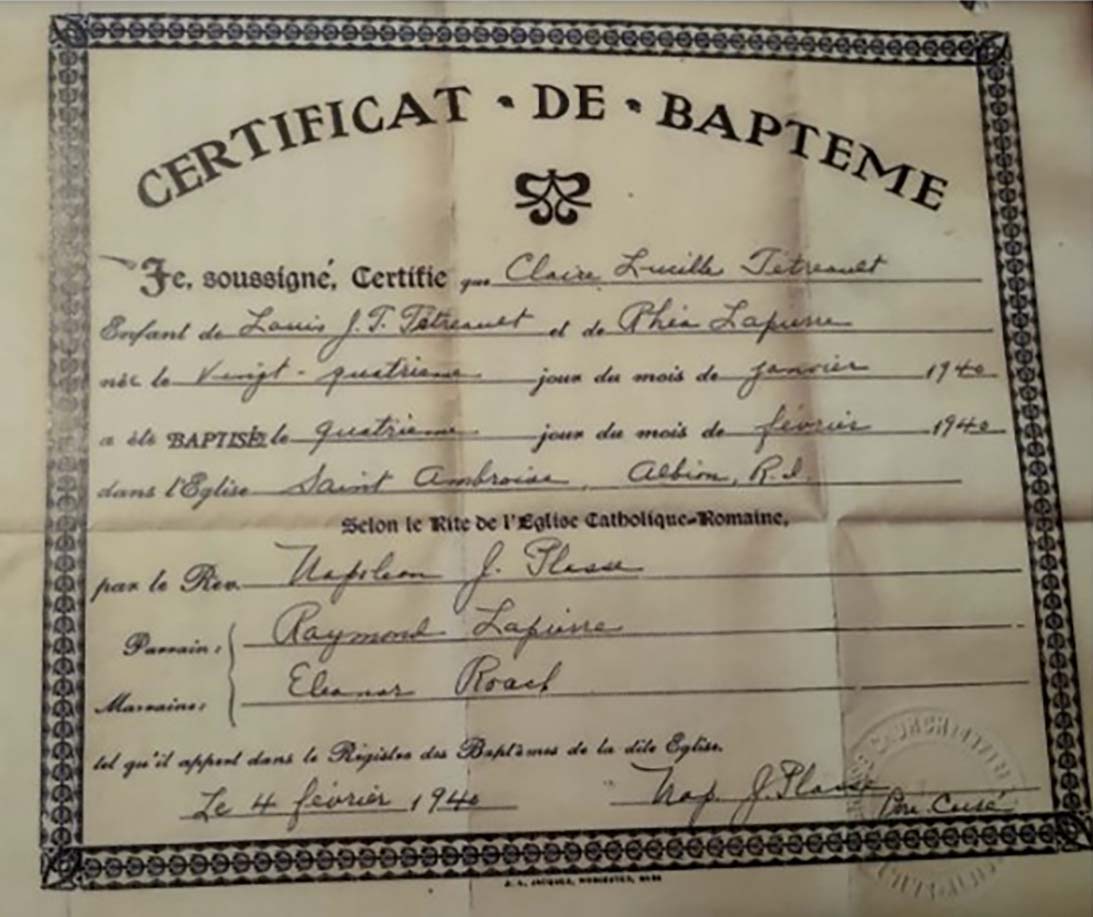 CERTIFICAT · DE · BAPTEME
Je, soussigné, Certifie que Claire Lucille Tétreault
Enfant de Louis J. T. Tétreault et de Rhéa Lapierre
née le Vingt-quatrième jour du mois de janvier 1940
a été BAPTISÉE le quatrième jour du mois de février 1940
dans l'Eglise Saint Ambroise, Albion, R.I.
Selon le Rite de l'Eglise Catholique-Romaine,
par le Rev. Napoleon J. Plasse
Parrain: Raymond Lapierre
Marraine: Eleanor Roach
tel qu'il appert dans le Régistre des Baptêmes de la dite Eglise.
Le 4 février 1940 Nap. J. Plasse
Curé